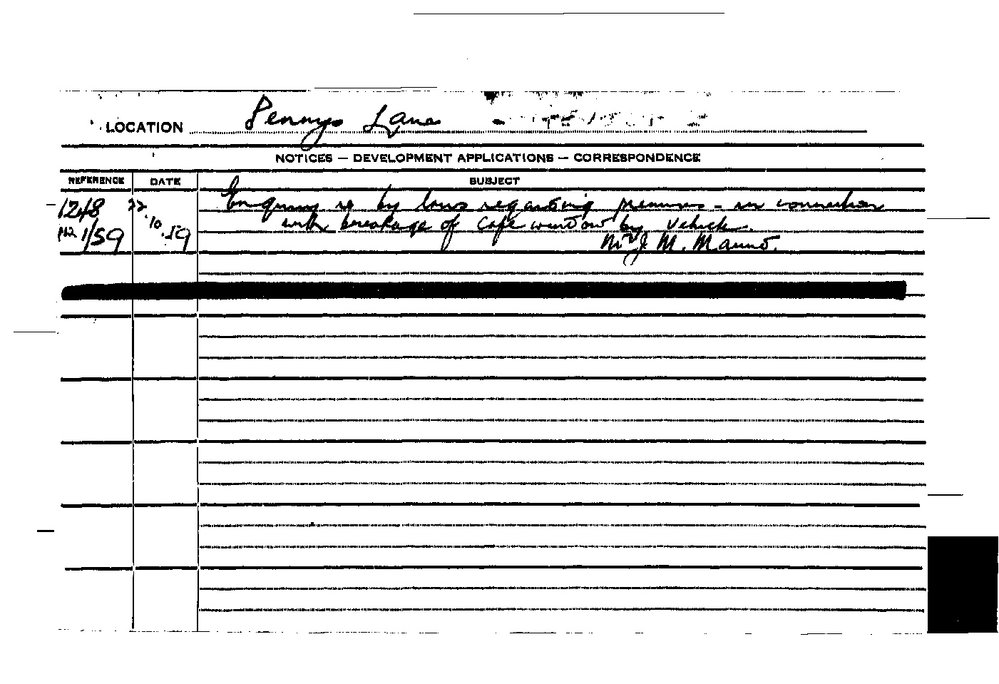 LOCATION Pennys Lane
NOTICES — DEVELOPMENT APPLICATIONS — CORRESPONDENCE
REFERENCE DATE SUBJECT
1248 22 Enquiry re by laws regarding premises - in connection
1/59 .10.59 with breakage of Cafe window by vehicle.
Mr J. M.